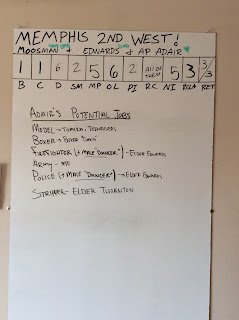 MEMPHIS 2ND WEST!
MOOSMAN & EDWARDS & AP ADAIR
1 1 6 2 5 6 2 ALL OF THEM 5 3 3/3
B C D SM MP OL PI RC NI RCLA RET
ADAIR'S POTENTIAL JOBS
MODEL → TEENAGERS
BOXER → BOXER
FIREFIGHTER (+ MALE "DANCER") - ELDER EDWARDS
ARMY - ME
POLICE (+ MALE "DANCER") → ELDER EDWARDS
STRIPPER - ELDER THORNTON